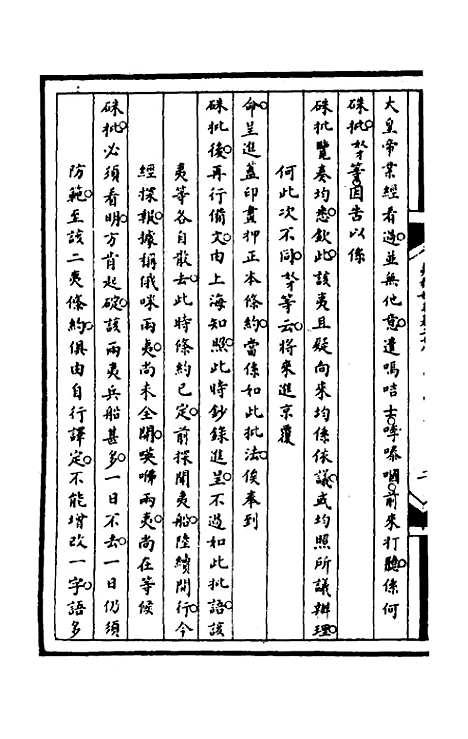 大皇帝業經看過並無他意遣嗎咭士嘑嗪嘓前來打聽係何
硃批奴才等因告以係
硃批覽奏均悉欽此該夷且疑向來均係依議或均照所議辦理
何此次不同奴才等云將來進京覆
命呈進蓋印畫押正本條約當係如此批法俟奉到
硃批後再行備文由上海知照此時鈔錄進呈不過如此批語該
夷等各自散去此時條約已定前探聞夷船陸續開行今
經探報據稱俄咪兩夷尚未全開𠸄咈兩夷尚在等候
硃批必須看明方肯起碇該兩夷兵船甚多一日不去一日仍須
防範至該二夷條約俱由自行譯定不能增改一字語多